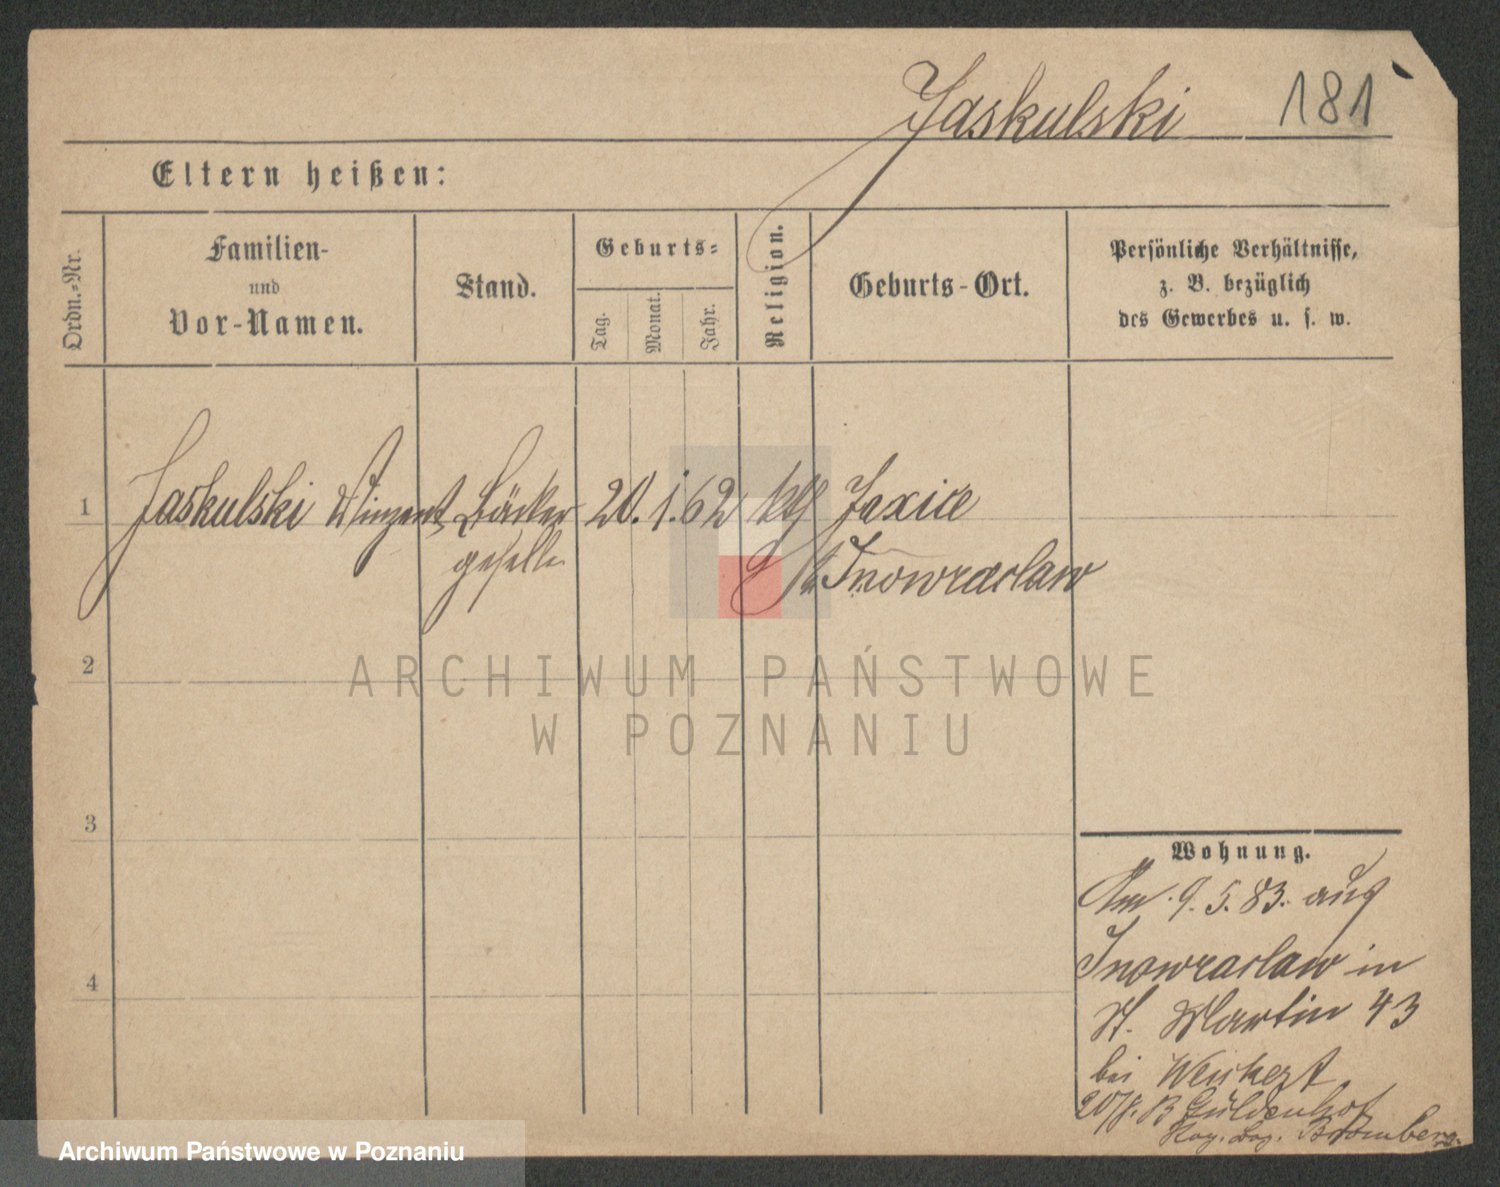 Jaskulski 181
Eltern heißen:
Ordn.-Nr.
Familien-
und
Vor-Namen.
Stand.
Geburts-
Tag.
Monat.
Jahr.
Religion.
Geburts-Ort.
Persönliche Verhältnisse,
z. B. bezüglich
des Gewerbes u. s. w.
1 Jaskulski Vinzent Bäcker 20. 1. 62 kth Jaxice
geselle Inowraclaw
2
ARCHIWUM PAŃSTWOWE
W POZNANIU
3
Wohnung.
9. 5. 83. aus
Inowraclaw in
4
St. Martin 43
bei Weichert
20/8. B Güldenhof
Reg. Bez. Bromberg.
Archiwum Państwowe w Poznaniu